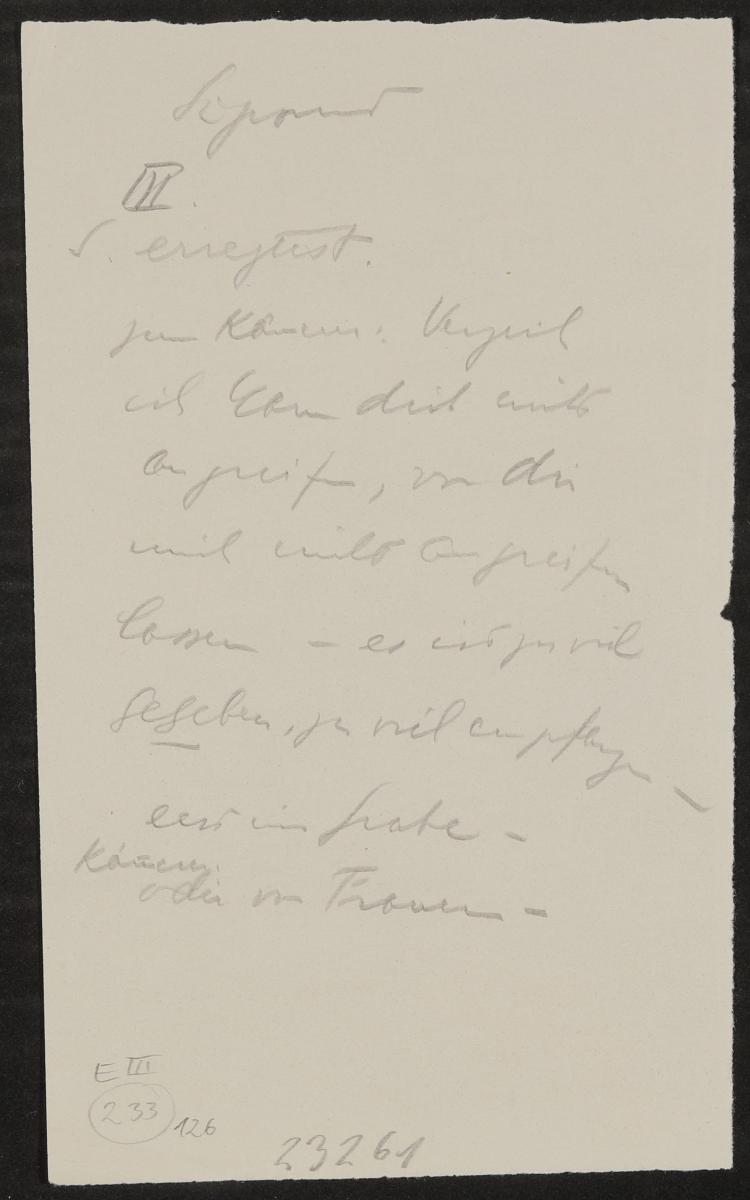 III.
S. erregtest.
zum Kämmerer: Verzeih
ich kann dich nicht
angreifen, von dir
mich nicht angreifen
lassen – es ist zu viel
gegeben, zu viel empfangen –
erst im Grabe –
oder von Frauen –
E III
233
126
23261